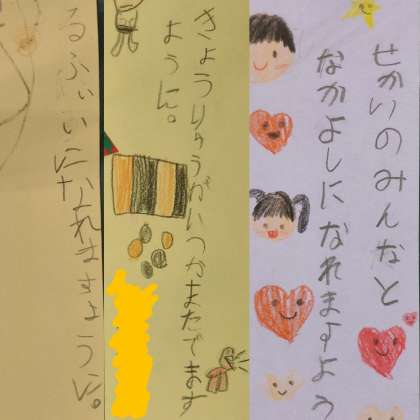 せかいのみんなと
なかよしになれますよう
きょうりゅうがいつかまたでます
ように。
るふぃいになれますように。